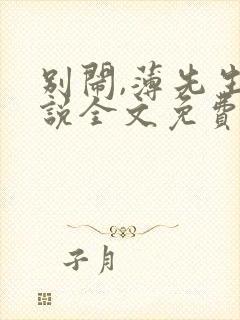 别鬧,薄先生
說全文免費
子月